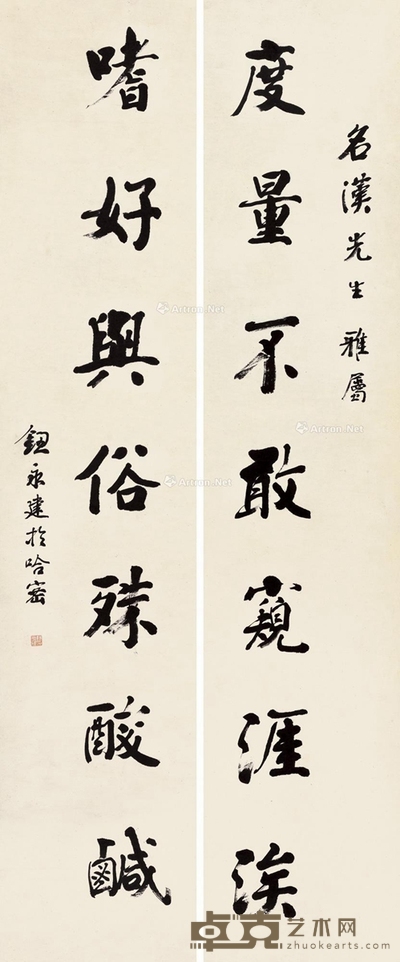 名漢先生雅屬
度量不敢窺涯涘
嗜好與俗殊酸鹹
鈕永建於哈密
Artron.Net
Artron.Net
Artron.Net
Artron.Net
卓克艺术网
zhuokearts.com